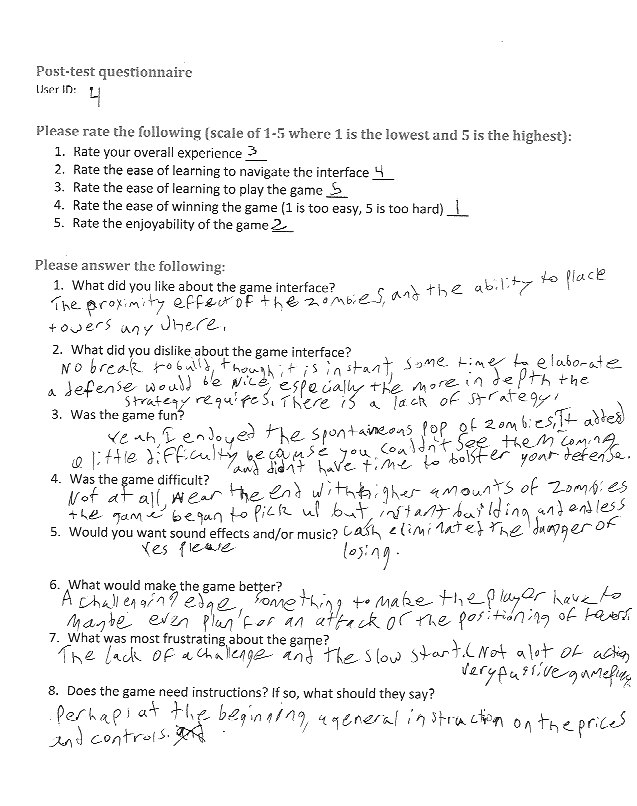 Post-test questionnaire
User ID: 4
Please rate the following (scale of 1-5 where 1 is the lowest and 5 is the highest):
1. Rate your overall experience 3
2. Rate the ease of learning to navigate the interface 4
3. Rate the ease of learning to play the game 5
4. Rate the ease of winning the game (1 is too easy, 5 is too hard) 1
5. Rate the enjoyability of the game 2
Please answer the following:
1. What did you like about the game interface?
The proximity effect of the zombies, and the ability to place
towers anywhere.
2. What did you dislike about the game interface?
No break to build, though it is instant, some time to elaborate
a defense would be nice, especially the more in depth the
strategy requires. There is a lack of strategy.
3. Was the game fun?
Yeah, I enjoyed the spontaneous pop of zombies, It added
a little difficulty because you couldn't see them coming
and didn't have time to bolster your defense.
4. Was the game difficult?
Not at all, near the end with higher amounts of zombies
the game began to pick up but instant building and endless
5. Would you want sound effects and/or music? cash eliminated the danger of
Yes please losing.
6. What would make the game better?
A challenging edge, something to make the player have to
maybe even plan for an attack or the positioning of towers.
7. What was most frustrating about the game?
The lack of a challenge and the slow start. (Not alot of action
very passive gameplay
8. Does the game need instructions? If so, what should they say?
Perhaps at the beginning, a general instruction on the prices
and controls.